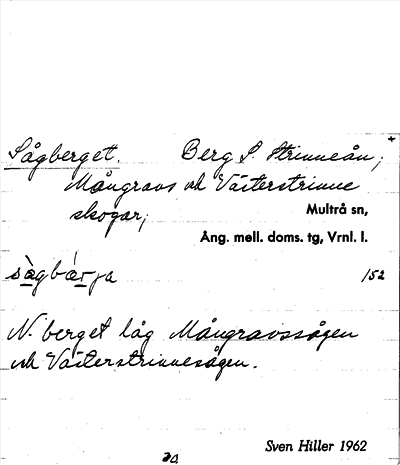 Sågberget. Berg S. Strinneån;
Mångravs och Västerstrinne
skogar;
Multrå sn,
Ång. mell. doms. tg, Vrnl. l.
sàgbár̲ja
152
N. berget låg Mångravssågen
och Västerstrinnesågen.
Sven Hiller 1962